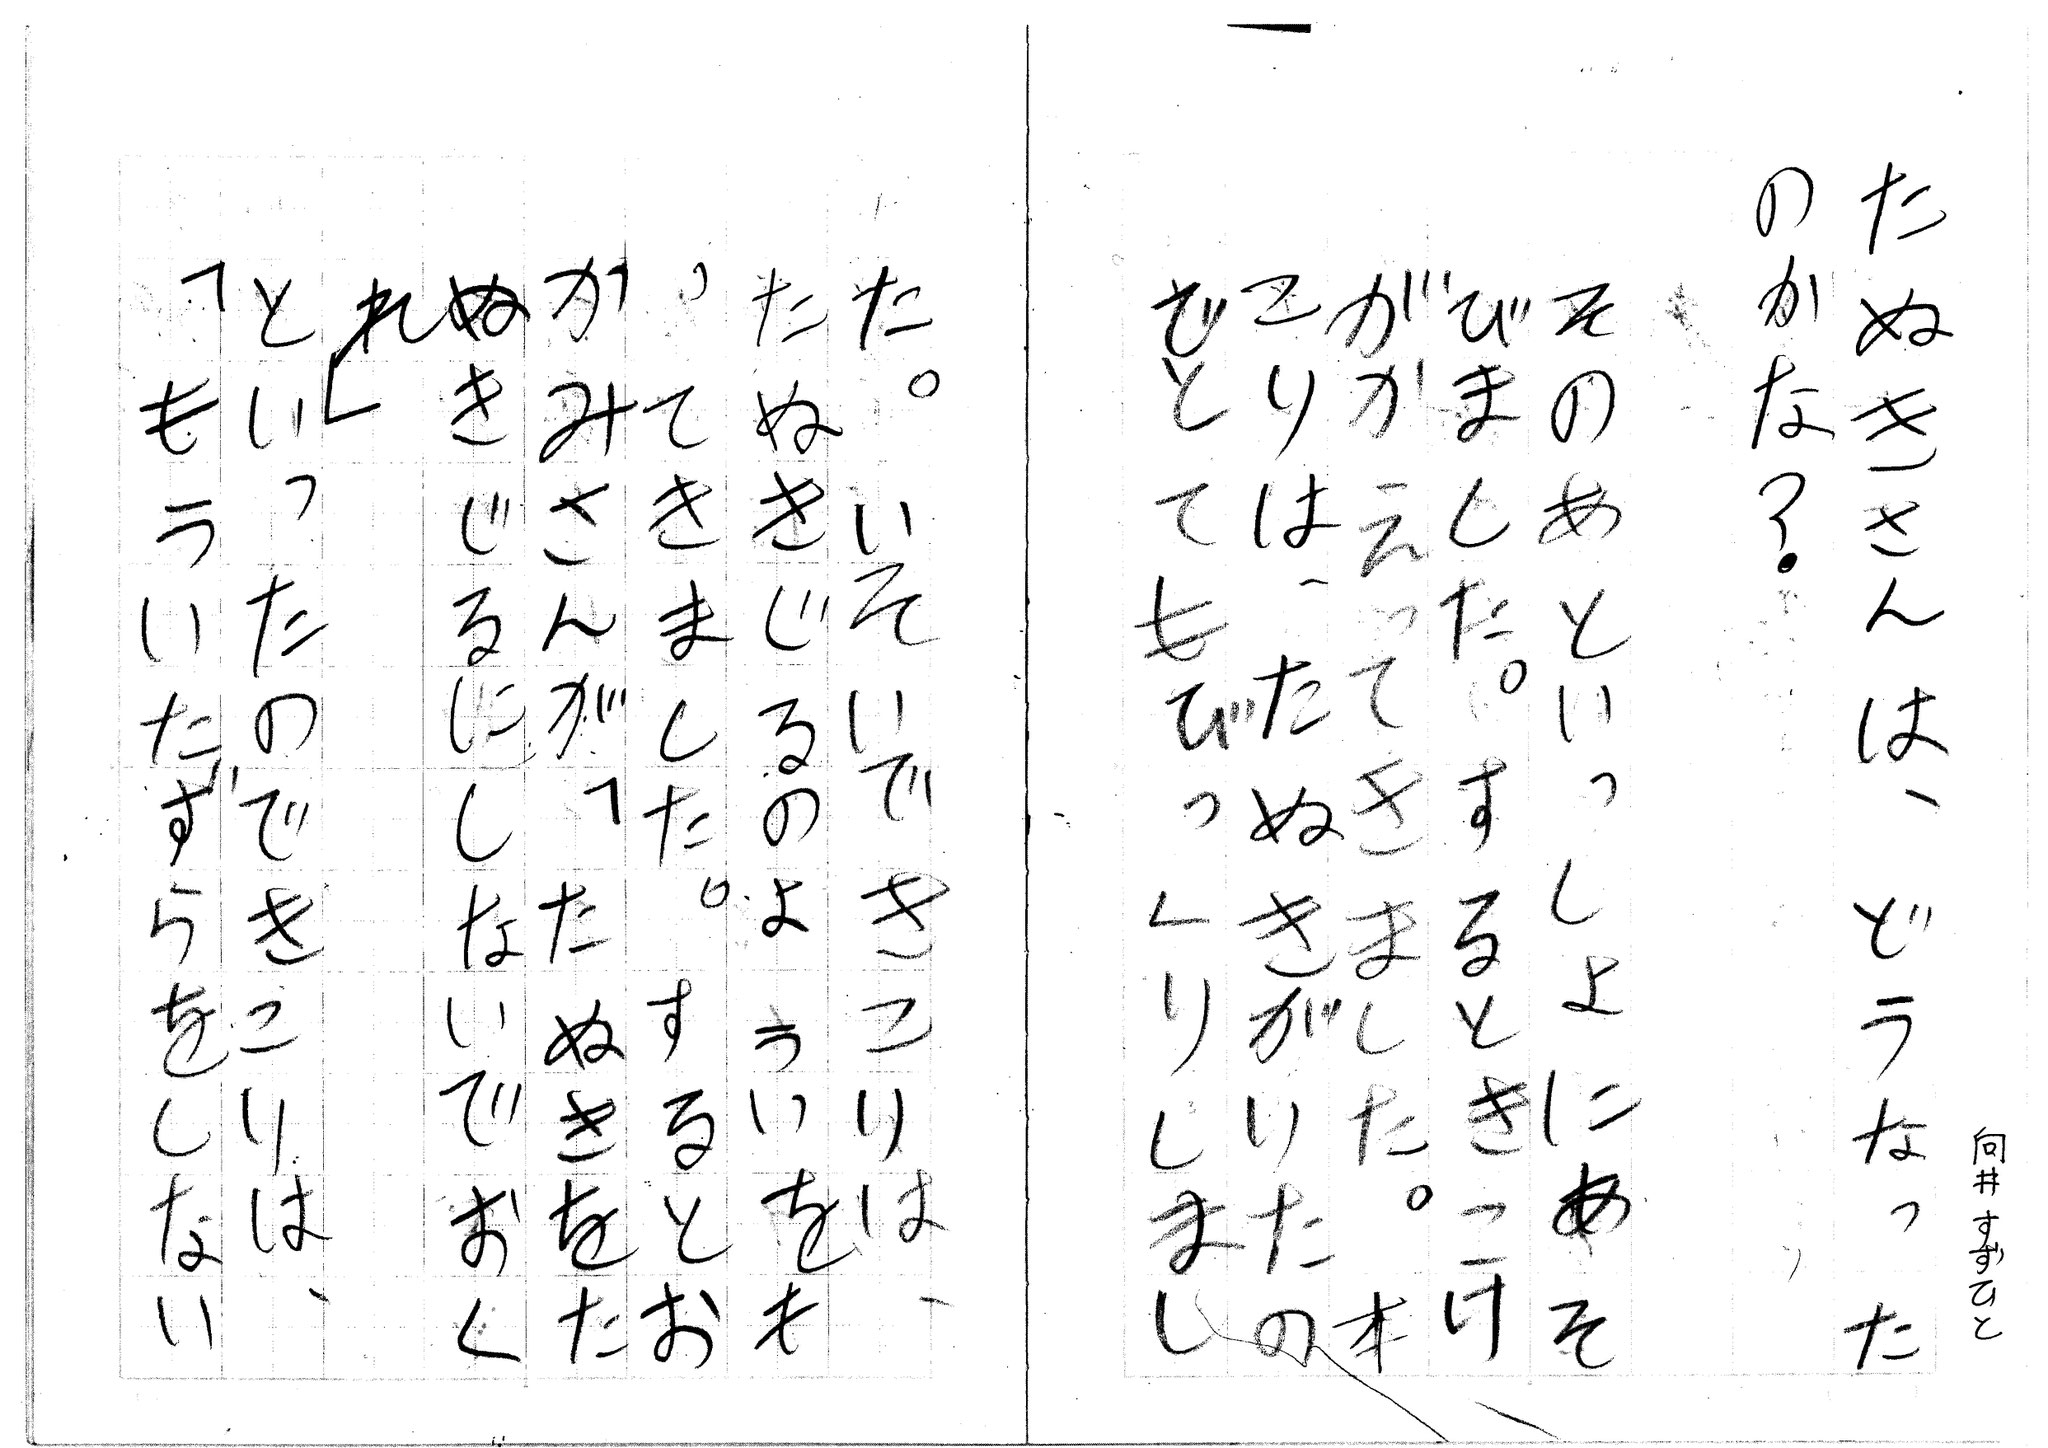 向井すずひと
たぬきさんは、どうなった
のかな?
そのあといっしょにあそ
びました。するときこけ
がかえってきました。木
こりは、たぬきがいたの
でとてもびっくりしまし
た。いそいできこりは、
たぬきじるのよういをも
ってきました。するとお
かみさんが「たぬきをた
ぬきじるにしないでおく
れ」
といったのできこりは、
「もういたずらをしない